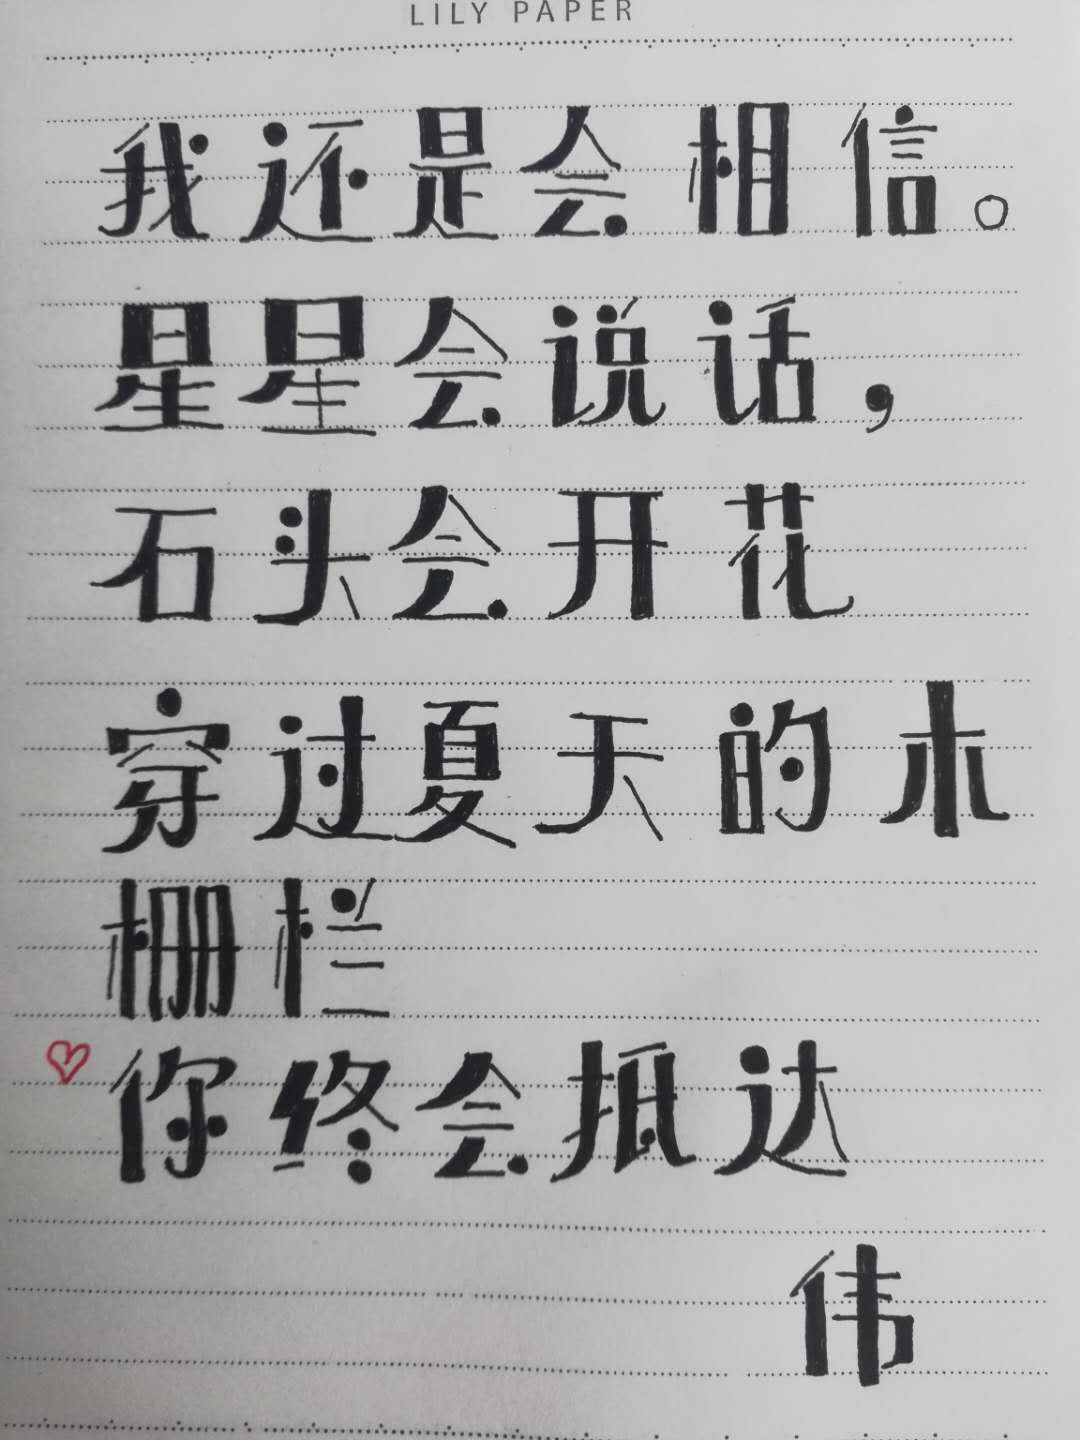 LILY PAPER
我还是会相信。
星星会说话，
石头会开花
穿过夏天的木
栅栏
你终会抵达
伟